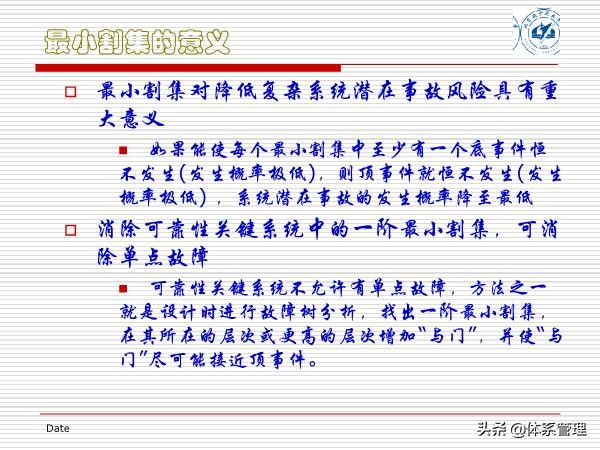 最小割集的意义
最小割集对降低复杂系统潜在事故风险具有重
大意义
如果能使每个最小割集中至少有一个底事件恒
不发生(发生概率极低)，则顶事件就恒不发生(发生
概率极低)，系统潜在事故的发生概率降至最低
消除可靠性关键系统中的一阶最小割集，可消
除单点故障
可靠性关键系统不允许有单点故障，方法之一
就是设计时进行故障树分析，找出一阶最小割集，
在其所在的层次或更高的层次增加“与门”，并使“与
门”尽可能接近顶事件。
Date
头条 @体系管理